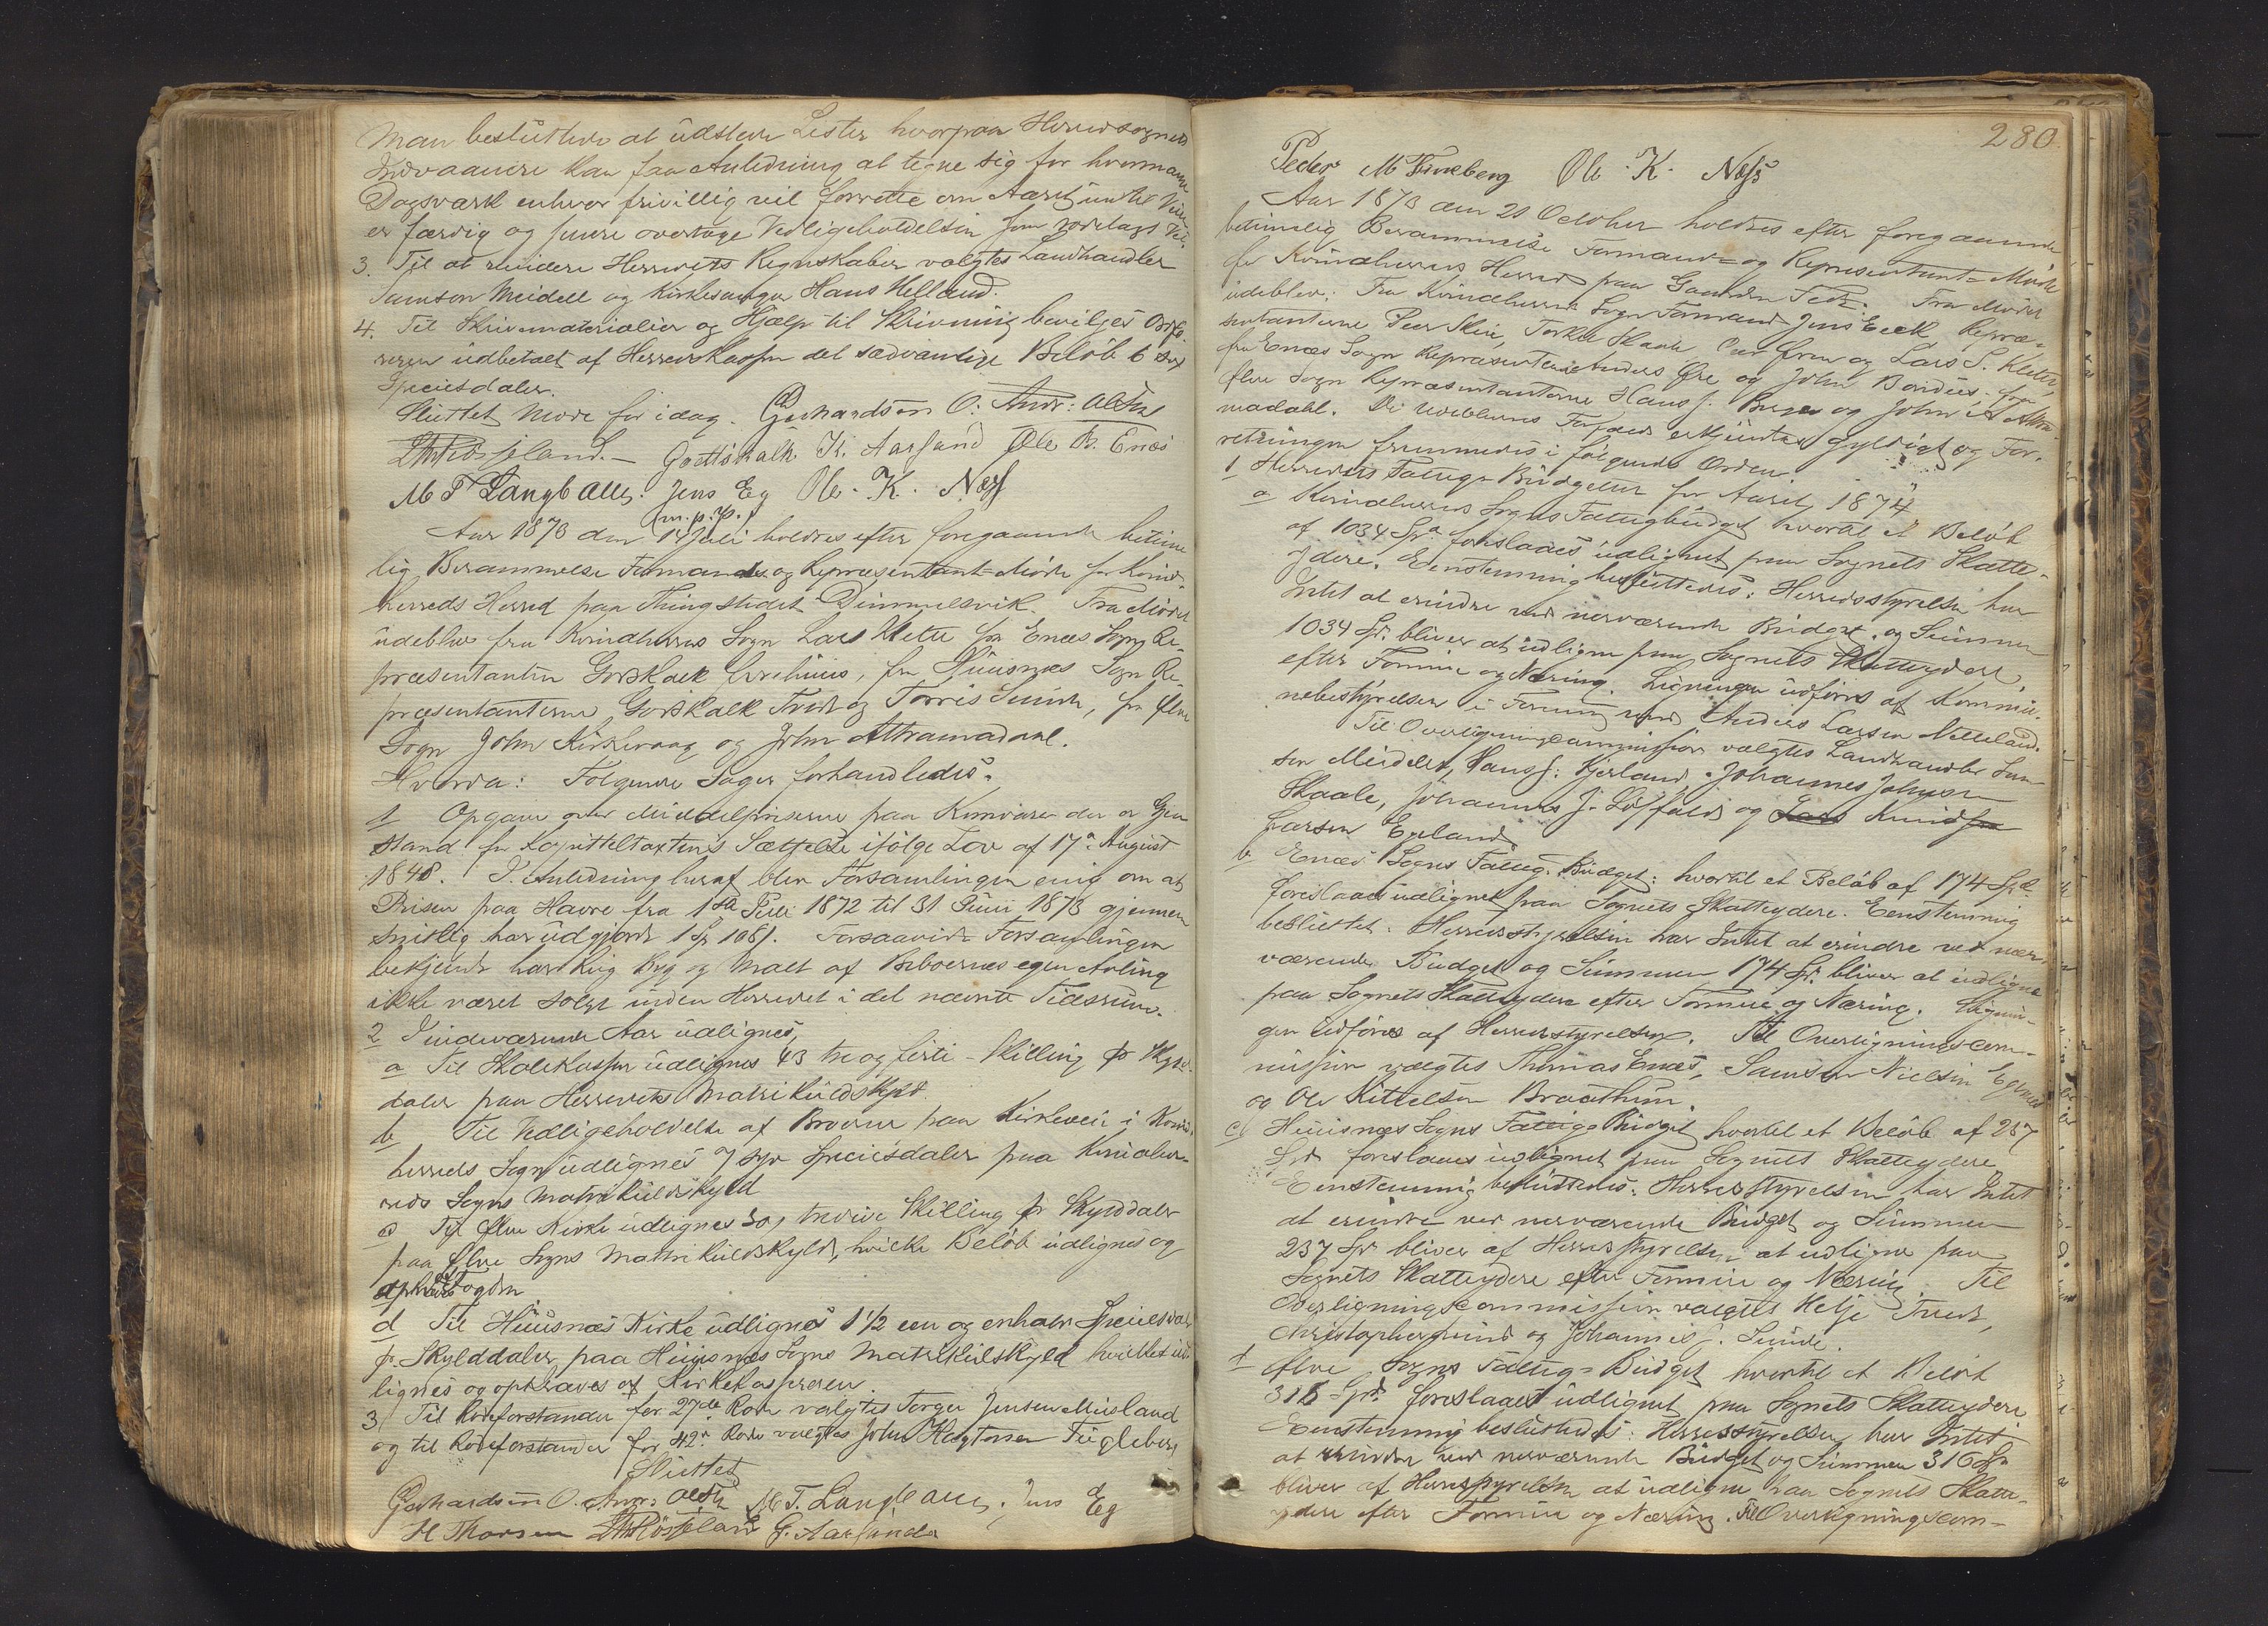 Man besluttede at udstæde Lister hvorpaa Herredsognets
Indvaanere kan faa Anledning at tegne sig for hvormange
Dagsværk enhver frivillig vil forrette om Aaret indtil Veien
er færdig og senere overtage Vedligeholdelsen
3. Til at revidere Herredets Regnskaber valgtes Landhandler
Samson Meidell og Kirkesanger Hans Helland.
4. Til Skrivematerialier og Hjælp til Skrivning bevilges Ordfø-
reren udbetalt af Herredskassen det sædvanlige Beløb 6 sex
Speciesdaler.
Sluttet Møde for idag. Gerhardson O: Andr: Olsen
Gottskalk K. Aarsand Ole B. Enæs
M T Langballe. Jens Eg Ole. K. Næss
(m. p. P.)
Aar 1873 den 14 Juli holdtes efter foregaaende betime-
lig Berammelse Formands og Repræsentant-Møde for Kvind-
herreds Herred paa Thingstedet Dimmelsvik. Fra Mødet
udeblev fra Kvindherreds Sogn Lars Klette fra Enæs Sogn Re-
præsentanten Godskalk, fra Huusnæs Sogn Re-
præsentanterne Godskalk Tveit og Torris Sunde, fra Ølve
Sogn John Kirkevaag og John Attramadal.
Hvorda: Følgende Sager forhandledes:
1 Opgave over Middelpriserne paa Kornvarer der er Gjen-
stand for Kapitteltaxtens Sættelse ifølge Lov af 17de August
1848. I Anledning heraf blev Forsamlingen enig om at
Prisen paa Havre fra 1ste Juli 1872 til 31 Juni 1873 gjennem-
snitlig har udgjort 1 Sp 108 s. Forsaavidt Forsamlingen
bekjendt har Rug Byg og Malt af Beboernes egen Avling
ikke været solgt inden Herredet i det nævnte Tidsrum.
2 I indeværende Aar udlignes,
a Til Skolekassen udlignes 43 tre og firti Skilling pr Skyld-
daler paa Herredets Matrikulskyld.
b Til Vedligeholdelse af Broerne paa Kirkeveie i Kvind-
herreds Sogn udlignes 7 syv Speciesdaler paa Kvindher-
reds Sogns Matrikulskyld
c Til Ølve Kirke udlignes 30, tredive Skilling pr Skylddaler
paa Ølve Sogns Matrikulskyld, hvilke Beløb udlignes og
opkræves af Fogden
d Til Huusnæs Kirke udlignes 1 1/2 een og enhalv Speciesdaler
pr. Skylddaler paa Huusnæs Sogns Matrikulskyld hvilket ud-
lignes og opkræves af Kirkekassereren.
3 Til Rodeforstander for 27de Rode valgtes Torger Jensen Musland
og til Rodeforstander for 42de Rode valgtes John Fugleberg
Sluttet
Gerhardson O. Andr: Olsen M. T. Langballe. Jens Eg
H Thorsen G. Aarsunda
280
Peder M Fureberg Ole. K. Næss
Aar 1873 den 21 October holdtes efter foregaaende
betimelig Berammelse Formands- og Repræsentant-Møde
for Kvindherreds Herred paa Gaarden Feet. Fra Mødet
udeblev: Fra Kvindherreds Sogn Formand Jens Eeck, Repræ-
sentanterne Peer Skeie, Torkel Skaale og Lars S. Klette,
fra Enæs Sogn Repræsentanterne Anders Øie og John Bondhus. fra
Ølve Sogn Repræsentanterne Hans J. og John Attra-
madahl. De Udeblevnes Forfald erkjendtes gyldigt og For-
retningen fremmedes i følgende Orden
1 Herredets Fattig-Budgetter for Aaret 1874
a Kvindherreds Sogns Fattigbudget hvortil et Beløb
af 1034 Spd foreslaaes udlignet paa Sognets Skatte-
ydere. Eenstemmig besluttedes: Herredsstyrelsen har
Intet at erindre ved nærværende Budget og Summen
1034 Spd. bliver at udligne paa Sognets Skatteydere
efter Formue og Næring. Ligningen udføres af Kommu-
nebestyrelsen i Forening med Anders Larsen Netteland.
Til Overligningscommission valgtes Landhandler Sam-
son Meidell, Hans J. Kjerland, Johannes Johnsen
Skaale, Johannes J. Løffald og Lars Knud
Larsen Egeland
b Enæs Sogns Fattig-Budget: hvortil et Beløb af 174 Spd.
foreslaaes udlignet paa Sognets Skatteydere. Eenstemmig
besluttet: Herredsstyrelsen har Intet at erindre ved nær-
værende Budget og Summen 174 Spd. bliver at udligne
paa Sognets Skatteydere efter Formue og Næring. Lignin-
gen udføres af Herredsstyrelsen. Til Overligningscom-
mission valgtes Thomas Enæs, Samson Nielsen
og Ole Kittelsen Braathun.
c) Huusnæs Sogns Fattige Budget hvortil et Beløb af 237
Spd. foreslaaes udlignet paa Sognets Skatteydere
Eenstemmig besluttedes: Herredsstyrelsen har Intet
at erindre ved nærværende Budget og Summen
237 Spd bliver af Herredsstyrelsen at udligne paa
Sognets Skatteydere efter Formue og Næring. Til
Overligningscommission valgtes Helje Tveit,
Christopher og Johannes J. Sunde.
d Ølve Sogns Fattig-Budget hvortil et Beløb
316 Spd. foreslaaet udlignet paa Sognets Skatteydere
Eenstemmig besluttedes: Herredsstyrelsen har Intet
at erindre ved nærværende Budget og Summen 316 Spd
bliver af Herredsstyrelsen at udligne paa Sognets Skatte-
ydere efter Formue og Næring. Til Overligningscom-